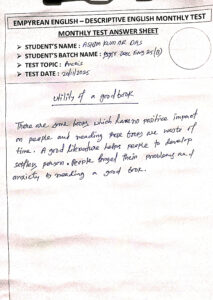 EMPYREAN ENGLISH – DESCRIPTIVE ENGLISH MONTHLY TEST
MONTHLY TEST ANSWER SHEET
➤ STUDENT'S NAME : KUMAR DAS
➤ STUDENT'S BATCH NAME :
➤ TEST TOPIC : Precis
➤ TEST DATE :
utility of a good book
There are some books which have no positive impact
on people and reading these books are waste of
time. A good literature helps people to develop
selfless person. People forget their problems and
anxiety by reading a good book.